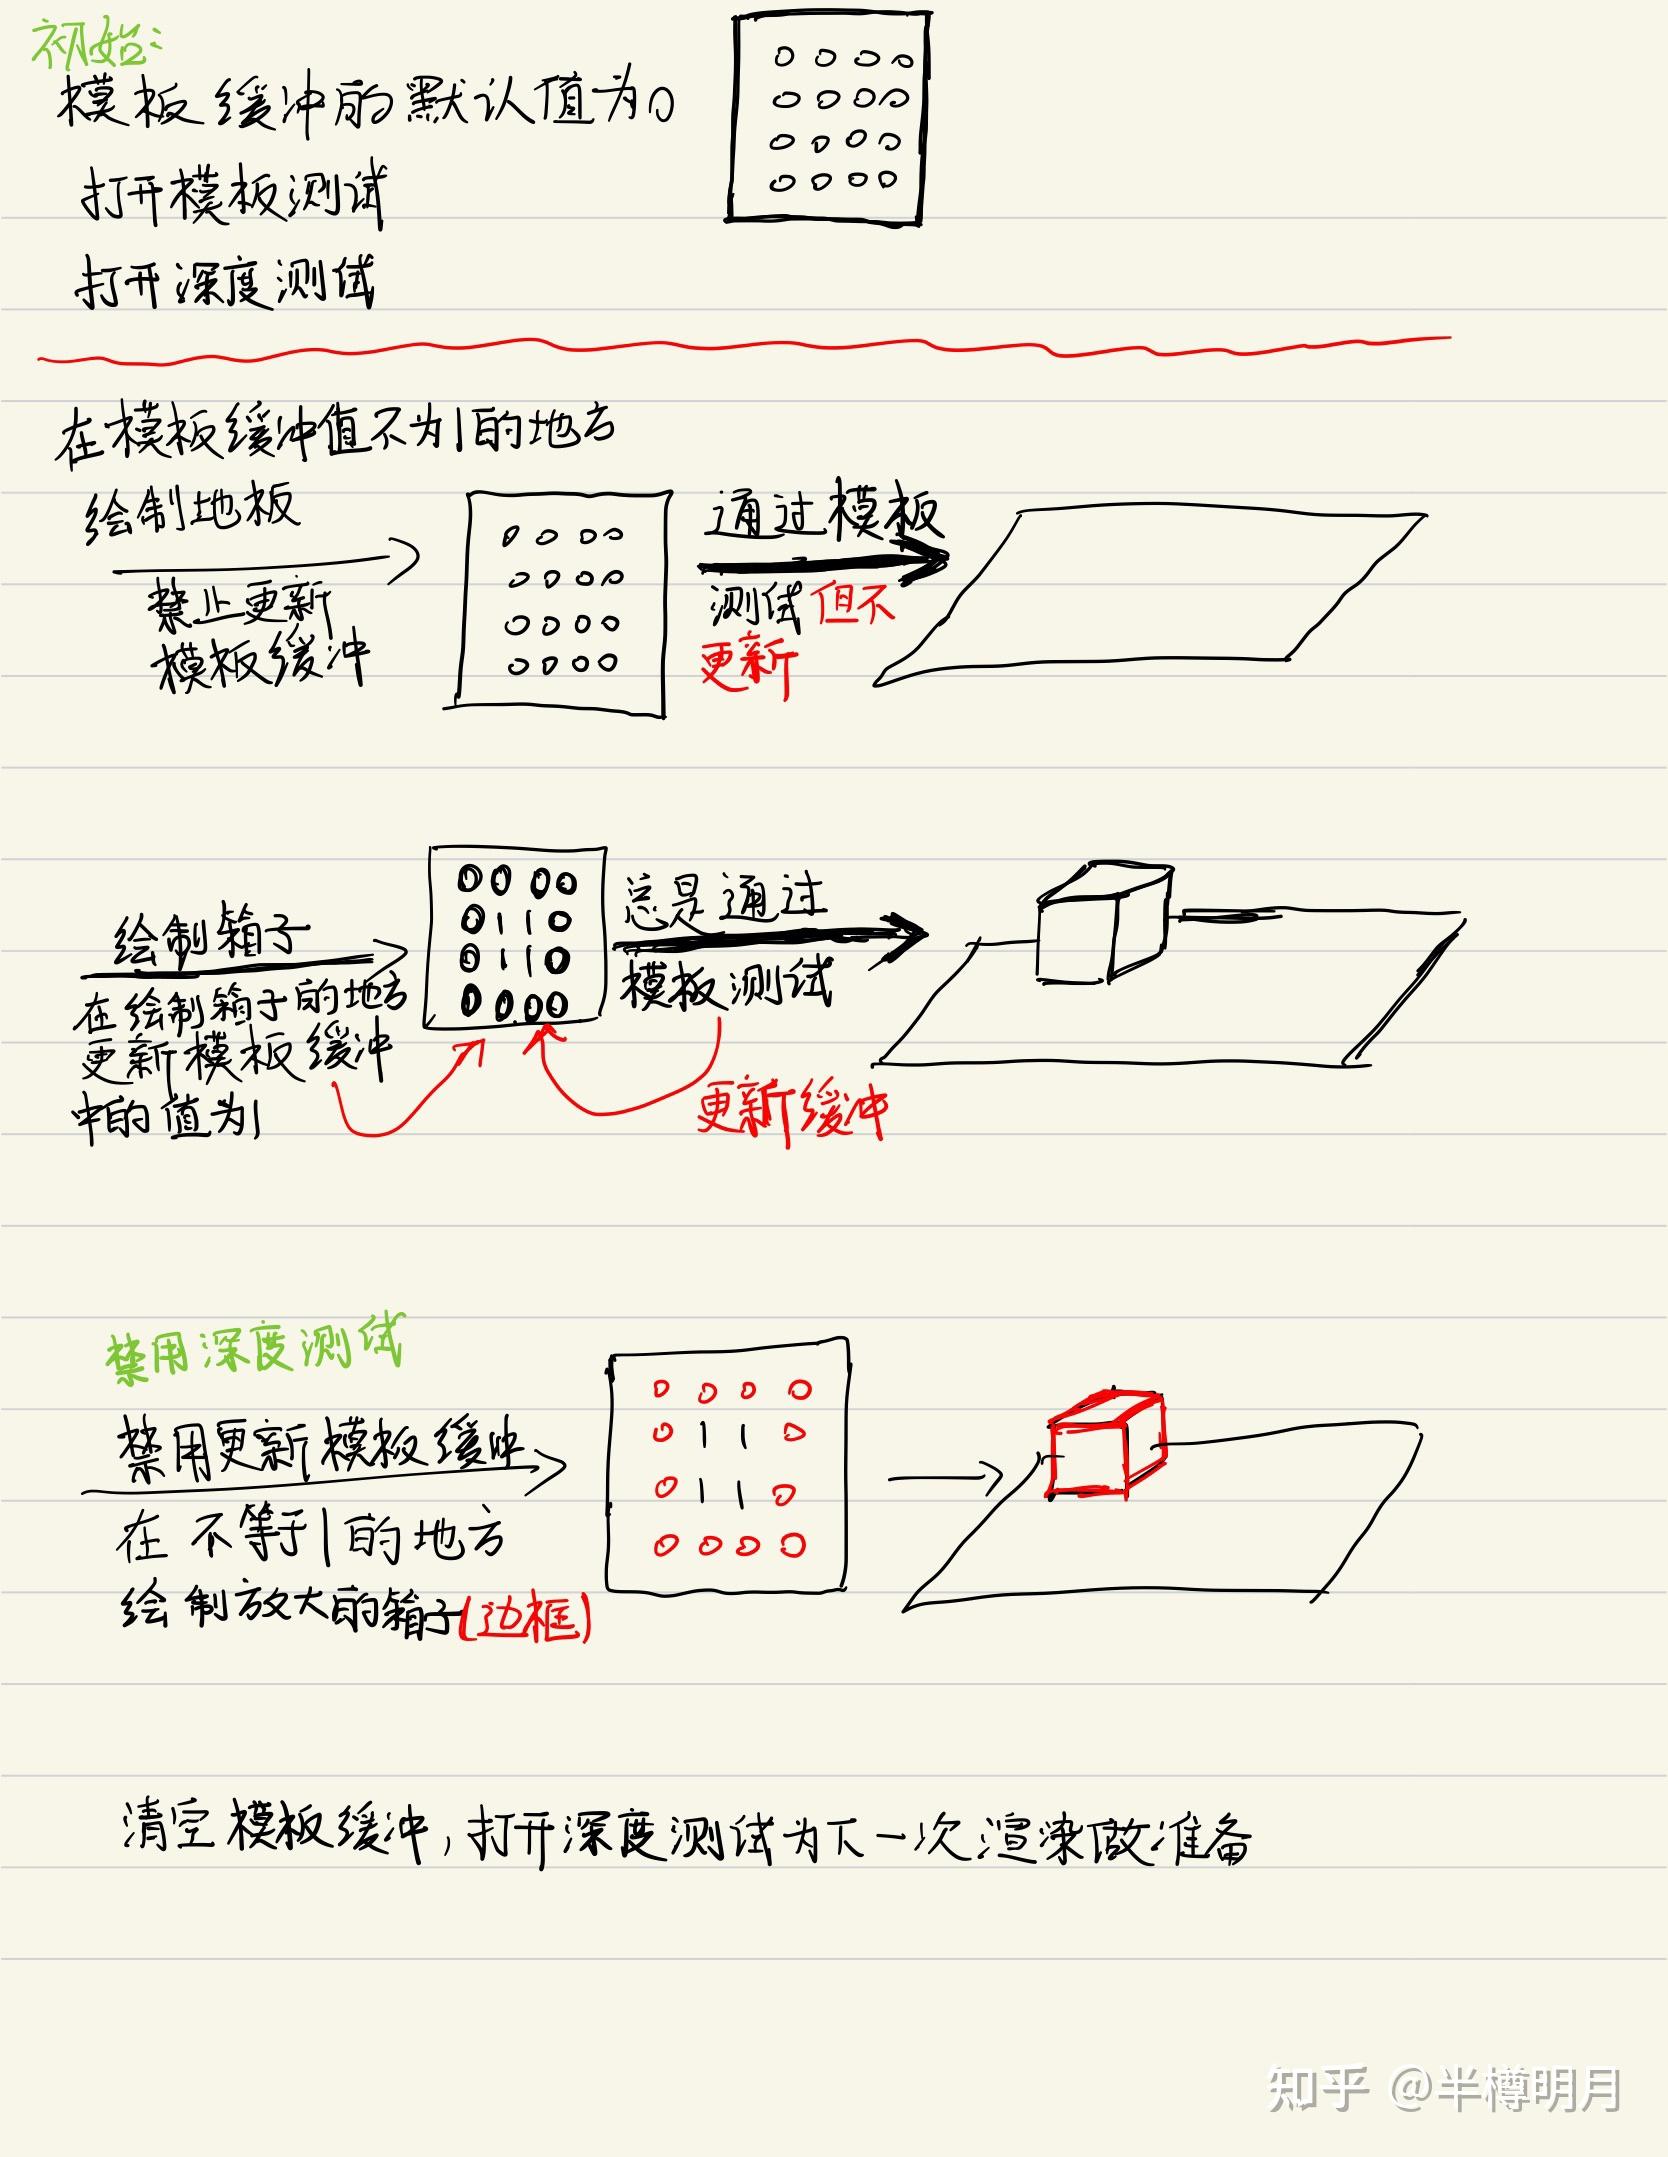 初始:
模板缓冲的默认值为0
0 0 0 0
0 0 0 0
0 0 0 0
0 0 0 0
打开模板测试
打开深度测试
在模板缓冲值不为1的地方
绘制地板
禁止更新
模板缓冲
0 0 0 0
0 0 0 0
0 0 0 0
0 0 0 0
通过模板
测试但不
更新
绘制箱子
在绘制箱子的地方
更新模板缓冲
中的值为1
0 0 0 0
0 1 1 0
0 1 1 0
0 0 0 0
总是通过
模板测试
更新缓冲
禁用深度测试
禁用更新模板缓冲
在不等于1的地方
绘制放大的箱子(边框)
0 0 0 0
0 1 1 0
0 1 1 0
0 0 0 0
清空模板缓冲,打开深度测试为下一次渲染做准备
知乎 @半樽明月